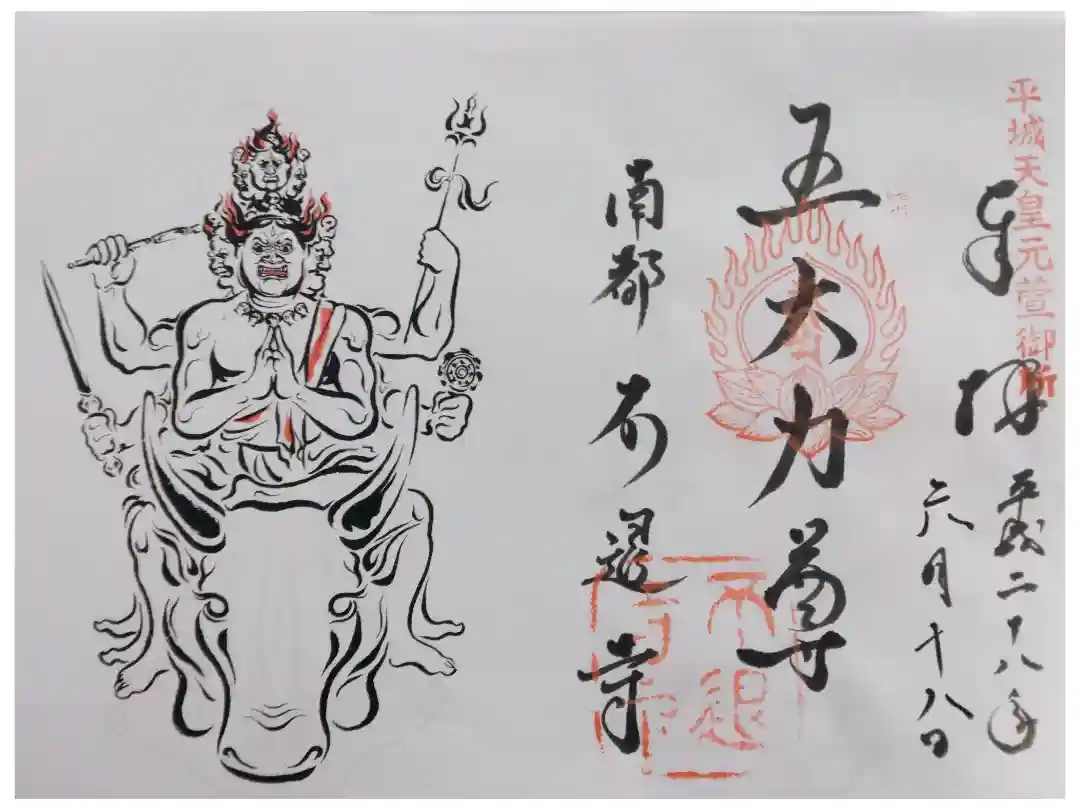 平城天皇元萱御所
奉拝
平成二十八年
六月十八日
五大力尊
南都不退寺
不退